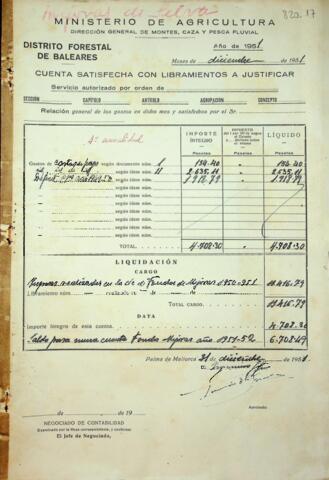 Mejoras de Selva
820.17
MINISTERIO DE AGRICULTURA
DIRECCIÓN GENERAL DE MONTES, CAZA Y PESCA FLUVIAL
DISTRITO FORESTAL
DE BALEARES
Año de 1951
Mes de diciembre de 1951
CUENTA SATISFECHA CON LIBRAMIENTOS A JUSTIFICAR
Servicio autorizado por orden de
SECCIÓN CAPÍTULO ARTÍCULO AGRUPACIÓN CONCEPTO
Relación general de los gastos en dicho mes y satisfechos por el Sr.
IMPORTE ÍNTEGRO
LÍQUIDO
Pesetas Pesetas Pesetas
Gastos de según documento núm. 1 154.40 154.40
según ídem núm. 11 2.635.11 2.635.11
según ídem núm.
según ídem núm.
según ídem núm.
según ídem núm.
según ídem núm.
TOTAL. 4.708.30 4.708.30
LIQUIDACIÓN
CARGO
Mejoras realizadas en la c/c de Fondos de Mejoras 1950-951 11.416.79
Libramiento núm. realizado en de de
TOTAL CARGO. 11.416.79
DATA
Importe íntegro de esta cuenta. 4.708.30
Saldo para nueva cuenta Fondos Mejoras año 1951-52 6.708.49
Palma de Mallorca 31 de diciembre de 1951
de de 19
NEGOCIADO DE CONTABILIDAD
El Jefe de Negociado,
Aprobado: